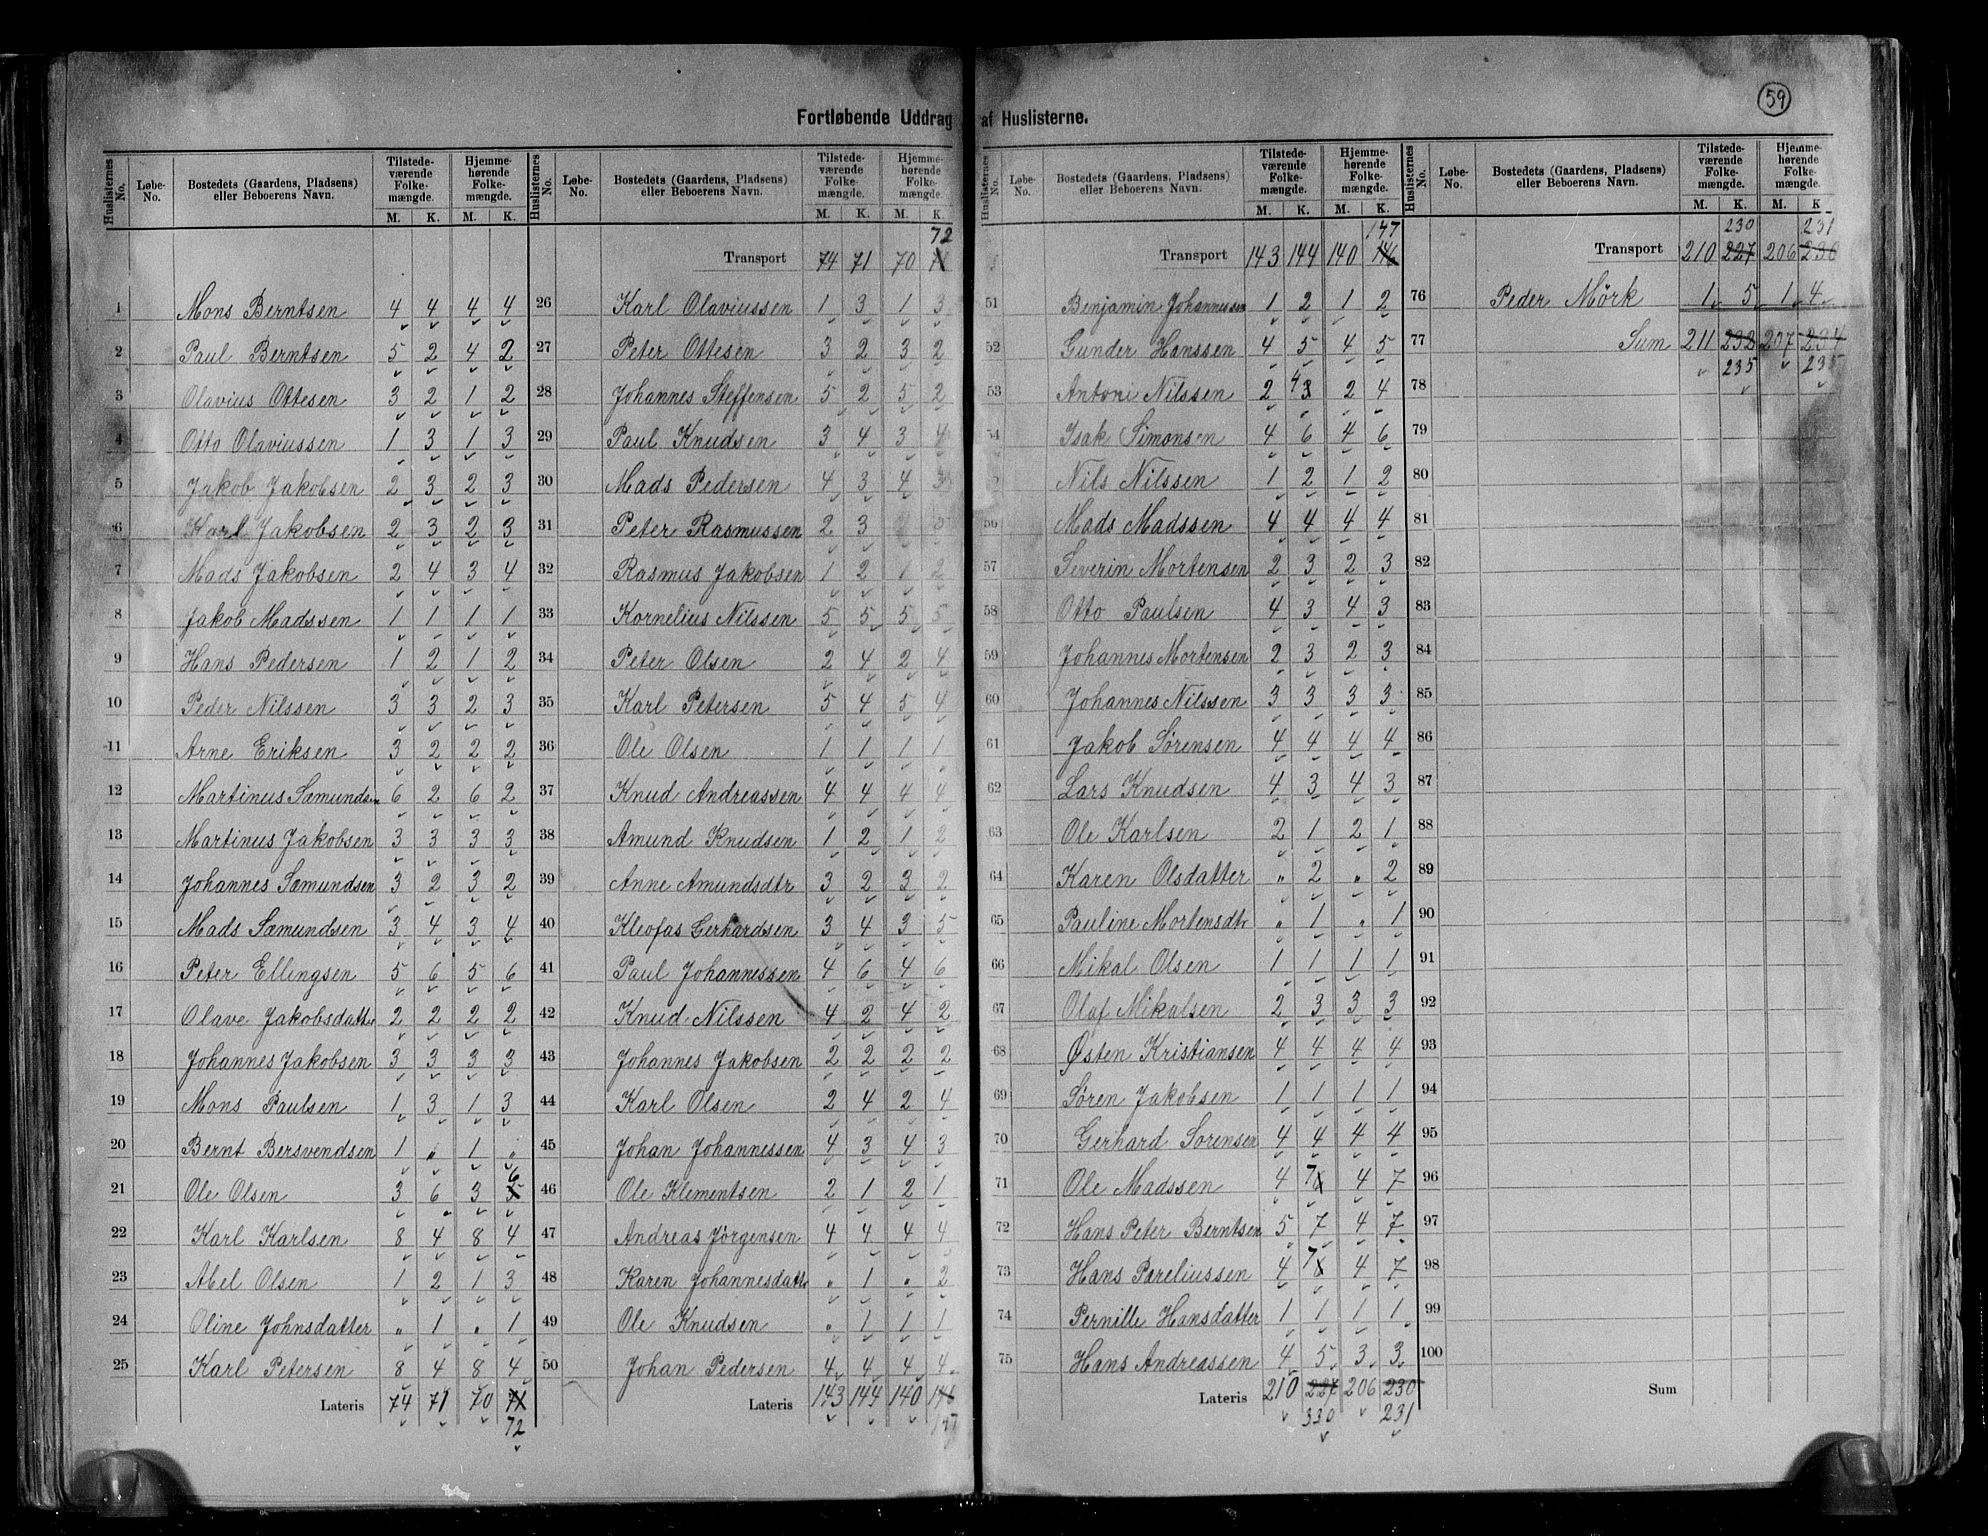 59
Fortløbende Uddrag af Huslisterne.
Huslisternes No. | Løbe-No. | Bostedets (Gaardens, Pladsens) eller Beboerens Navn. | Tilstedeværende Folkemængde. M. K. | Hjemmehørende Folkemængde. M. K.
1 Mons Berntsen 4 4 4 4
2 Paul Berntsen 5 2 4 2
3 Olavius Ottesen 3 2 1 2
4 Otto Olaviussen 1 3 1 3
5 Jakob Jakobsen 2 3 2 3
6 Karl Jakobsen 2 3 2 3
7 Mads Jakobsen 2 4 3 4
8 Jakob Madssen 1 1 1 1
9 Hans Pedersen 1 2 1 2
10 Peder Nilssen 3 3 2 3
11 Arne Eriksen 3 2 2 2
12 Martinus Sæmundsen 6 2 6 2
13 Martinus Jakobsen 3 3 3 3
14 Johannes Sæmundsen 3 2 3 2
15 Mads Sæmundsen 3 4 3 4
16 Peter Ellingsen 5 6 5 6
17 Olave Jakobsdatter 2 2 2 2
18 Johannes Jakobsen 3 3 3 3
19 Mons Paulsen 1 3 1 3
20 Bernt Bersvendsen 1 „ 1 „
21 Ole Olsen 3 6 3 5 6
22 Karl Karlsen 8 4 8 4
23 Abel Olsen 1 2 1 3
24 Oline Johnsdatter „ 1 „ 1
25 Karl Petersen 8 4 8 4
Lateris 74 71 70 71
72
Huslisternes No. | Løbe-No. | Bostedets (Gaardens, Pladsens) eller Beboerens Navn. | Tilstedeværende Folkemængde. M. K. | Hjemmehørende Folkemængde. M. K.
72
Transport 74 71 70 71
26 Karl Olaviussen 1 3 1 3
27 Peter Ottesen 3 2 3 2
28 Johannes Steffensen 5 2 5 2
29 Paul Knudsen 3 4 3 4
30 Mads Pedersen 4 3 4 3
31 Peter Rasmussen 2 3
32 Rasmus Jakobsen 1 2 1 2
33 Kornelius Nilssen 5 5 5 5
34 Peter Olsen 2 4 2 4
35 Karl Petersen 5 4 5 4
36 Ole Olsen 1 1 1 1
37 Knud Andreassen 4 4 4 4
38 Amund Knudsen 1 2 1 2
39 Anne Amundsdtr 3 2 3 2
40 Kleofas Gerhardsen 3 4 3 5
41 Paul Johannessen 4 6 4 6
42 Knud Nilssen 4 2 4 2
43 Johannes Jakobsen 2 2 2 2
44 Karl Olsen 2 4 2 4
45 Johan Johannessen 4 3 4 3
46 Ole Klementsen 2 1 2 1
47 Andreas Jörgensen 4 4 4 4
48 Karen Johannesdatter „ 1 „ 2
49 Ole Knudsen „ 1 1 1
50 Johan Pedersen 4 4 4 4
Lateris 143 144 140 146
147
Huslisternes No. | Løbe-No. | Bostedets (Gaardens, Pladsens) eller Beboerens Navn. | Tilstedeværende Folkemængde. M. K. | Hjemmehørende Folkemængde. M. K.
147
Transport 143 144 140 146
51 Benjamin Johannessen 1 2 1 2
52 Gunder Hanssen 4 5 4 5
53 Antoni Nilssen 2 4 3 2 4
54 Isak Simonsen 4 6 4 6
Nils Nilssen 1 2 1 2
56 Mads Madssen 4 4 4 4
57 Severin Mortensen 2 3 2 3
58 Otto Paulsen 4 3 4 3
59 Johannes Mortensen 2 3 2 3
60 Johannes Nilssen 3 3 3 3
61 Jakob Sörensen 4 4 4 4
62 Lars Knudsen 4 3 4 3
63 Ole Karlsen 2 1 2 1
64 Karen Olsdatter „ 2 „ 2
65 Pauline Mortensdtr „ 1 „ 1
66 Mikal Olsen 1 1 1 1
67 Olaf Mikalsen 2 3 3 3
68 Østen Kristiansen 4 4 4 4
69 Sören Jakobsen 1 1 1 1
70 Gerhard Sörensen 4 4 4 4
71 Ole Madssen 4 7 4 7
72 Hans Peter Berntsen 5 7 4 7
73 Hans Pareliussen 4 7 4 7
74 Pernille Hansdatter 1 1 1 1
75 Hans Andreassen 4 5 3 3
Lateris 210 227 206 230
330 231
Huslisternes No. | Løbe-No. | Bostedets (Gaardens, Pladsens) eller Beboerens Navn. | Tilstedeværende Folkemængde. M. K. | Hjemmehørende Folkemængde. M. K
230 231
Transport 210 227 206 230
76 Peder Mörk 1 5 1 4
77 Sum 211 232 207 234
235 235
78
79
80
81
82
83
84
85
86
87
88
89
90
91
92
93
94
95
96
97
98
99
100
Sum